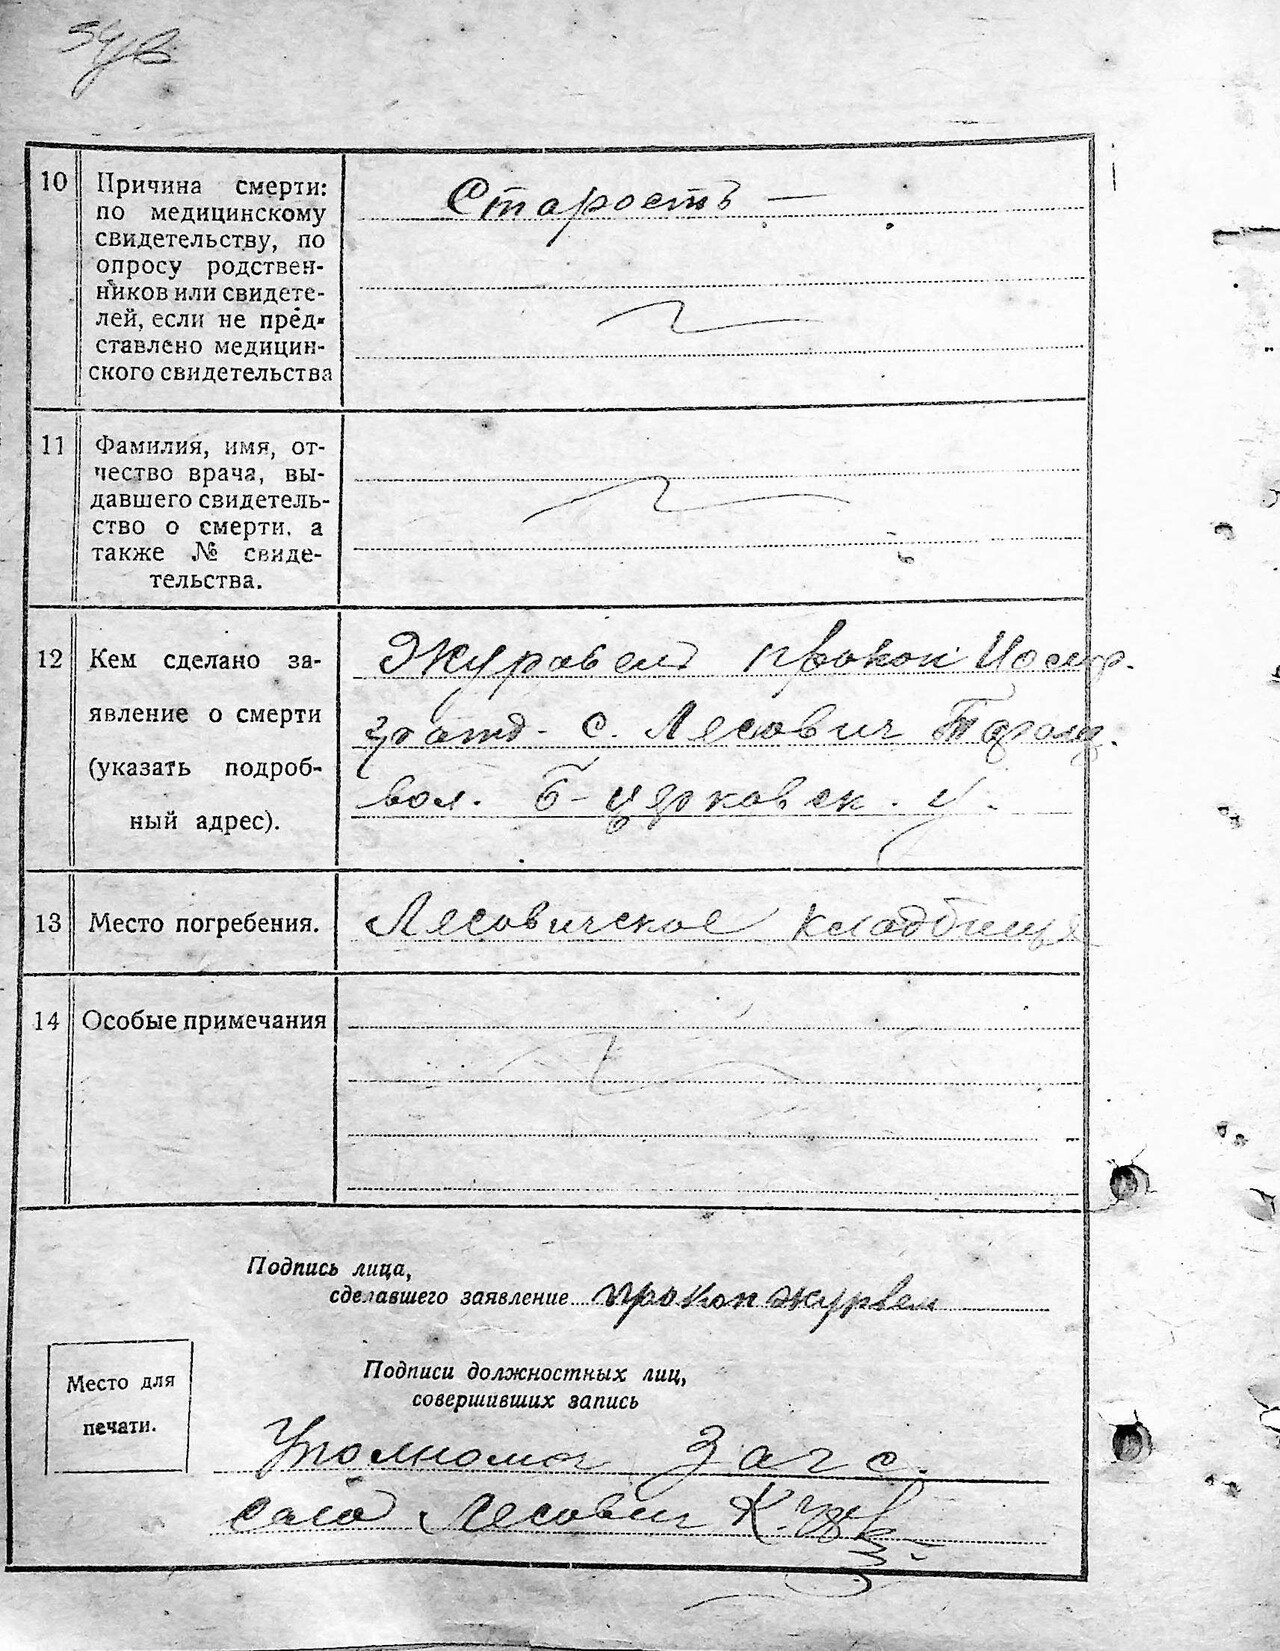 10
Причина смерти:
по медицинскому
свидетельству, по
опросу родствен-
ников или свидете-
лей, если не пред-
ставлено медицин-
ского свидетельства
Старость —
11
Фамилия, имя, от-
чество врача, вы-
давшего свидетель-
ство о смерти, а
также № свиде-
тельства.
12
Кем сделано за-
явление о смерти
(указать подроб-
ный адрес).
Журавель Прокоп Иосиф.
гражд. с. Лесович Таращ.
вол. Б-церковск. у.
13
Место погребения.
Лесовичское кладбище
14
Особые примечания
Подпись лица,
сделавшего заявление прокоп журвель
Место для
печати.
Подписи должностных лиц,
совершивших запись
Уполномоч Загс.
села Лесович К.